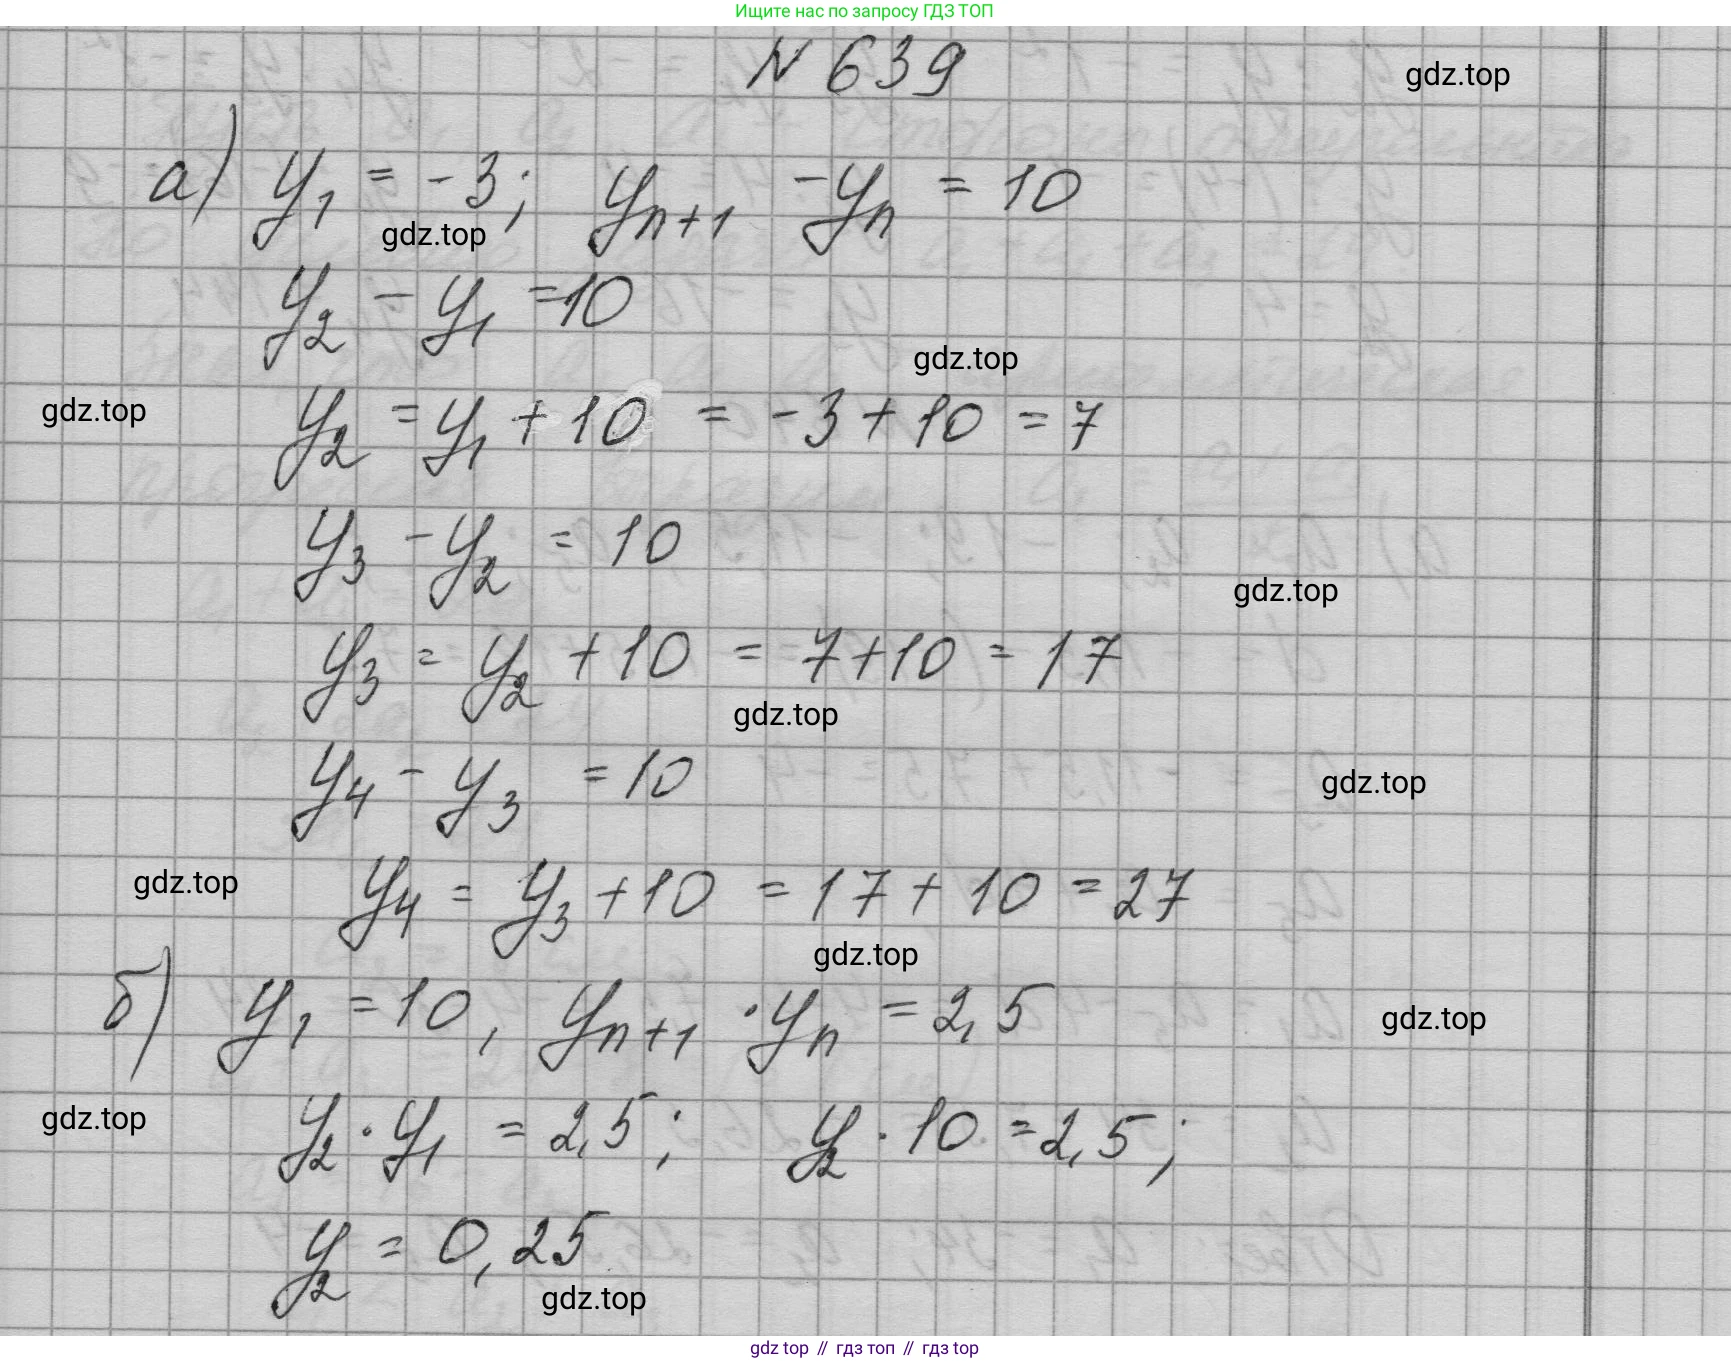 Ищите нас по запросу ГДЗ ТОП
N 639
gdz.top
а) y₁ = -3; yₙ₊₁ - yₙ = 10
gdz.top
y₂ - y₁ = 10
gdz.top
gdz.top
y₂ = y₁ + 10 = -3 + 10 = 7
y₃ - y₂ = 10
gdz.top
y₃ = y₂ + 10 = 7 + 10 = 17
gdz.top
y₄ - y₃ = 10
gdz.top
gdz.top
y₄ = y₃ + 10 = 17 + 10 = 27
gdz.top
б) y₁ = 10, yₙ₊₁ · yₙ = 2,5
gdz.top
gdz.top
y₂ · y₁ = 2,5; y₂ · 10 = 2,5;
y₂ = 0,25
gdz.top
gdz top // гдз топ // гдз top